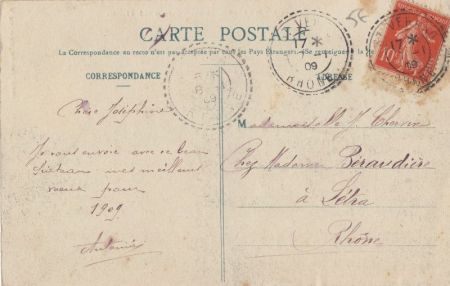 CARTE POSTALE
La Correspondance au recto n'est pas acceptée par tous les Pays Étrangers. (Se renseigner à la Poste)
CORRESPONDANCE
ADRESSE
17 *
09
RHÔNE
10
5€
Chère Joséphine
Je vous envoie avec ce beau
mes meilleurs
vœux pour
1909
Antonin
Mademoiselle J.
Chez Madame Béraudier
à Létra
Rhône